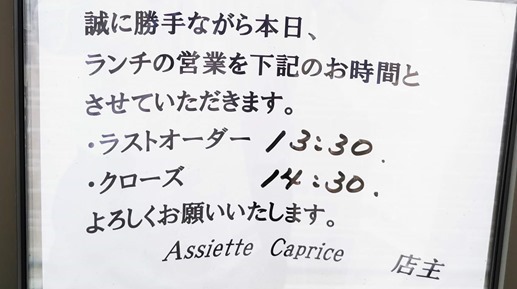 誠に勝手ながら本日、
ランチの営業を下記のお時間と
させていただきます。
・ラストオーダー 13:30.
・クローズ 14:30.
よろしくお願いいたします。
Assiette Caprice 店主